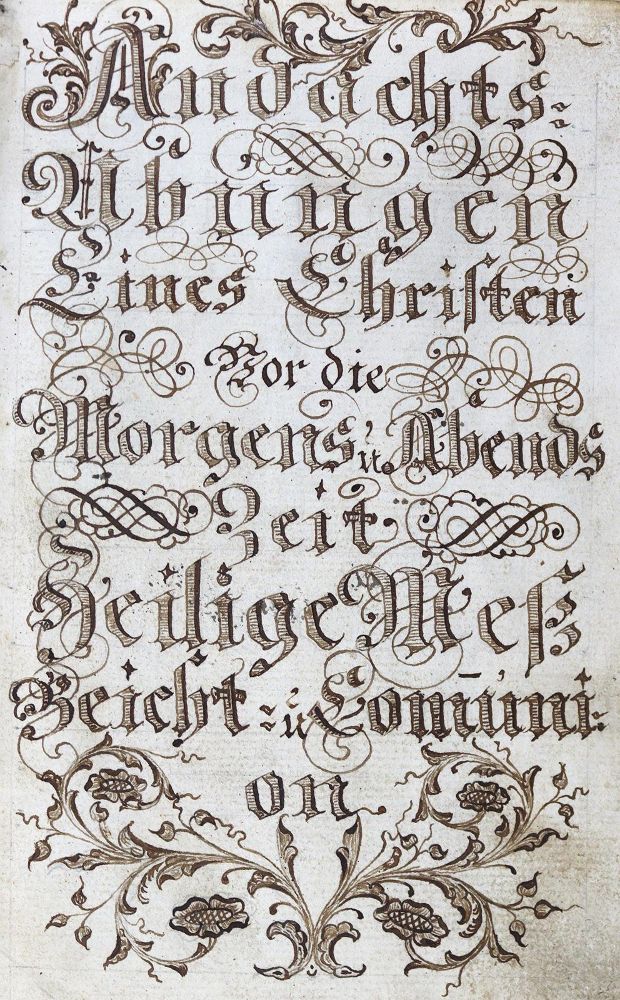 Andachts=
Übungen
Eines Christen
Vor die
Morgens, u. Abends
Zeit.
Heilige Meß
Beicht = u. Com̄uni=
on.